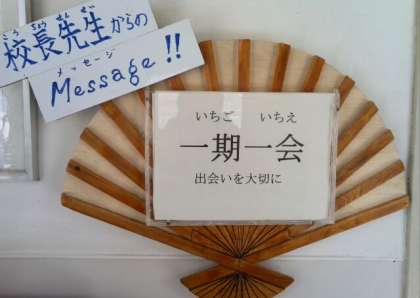 こうちょうせんせい
校長先生からの
メッセージ
Message!!
いちご いちえ
一期一会
出会いを大切に